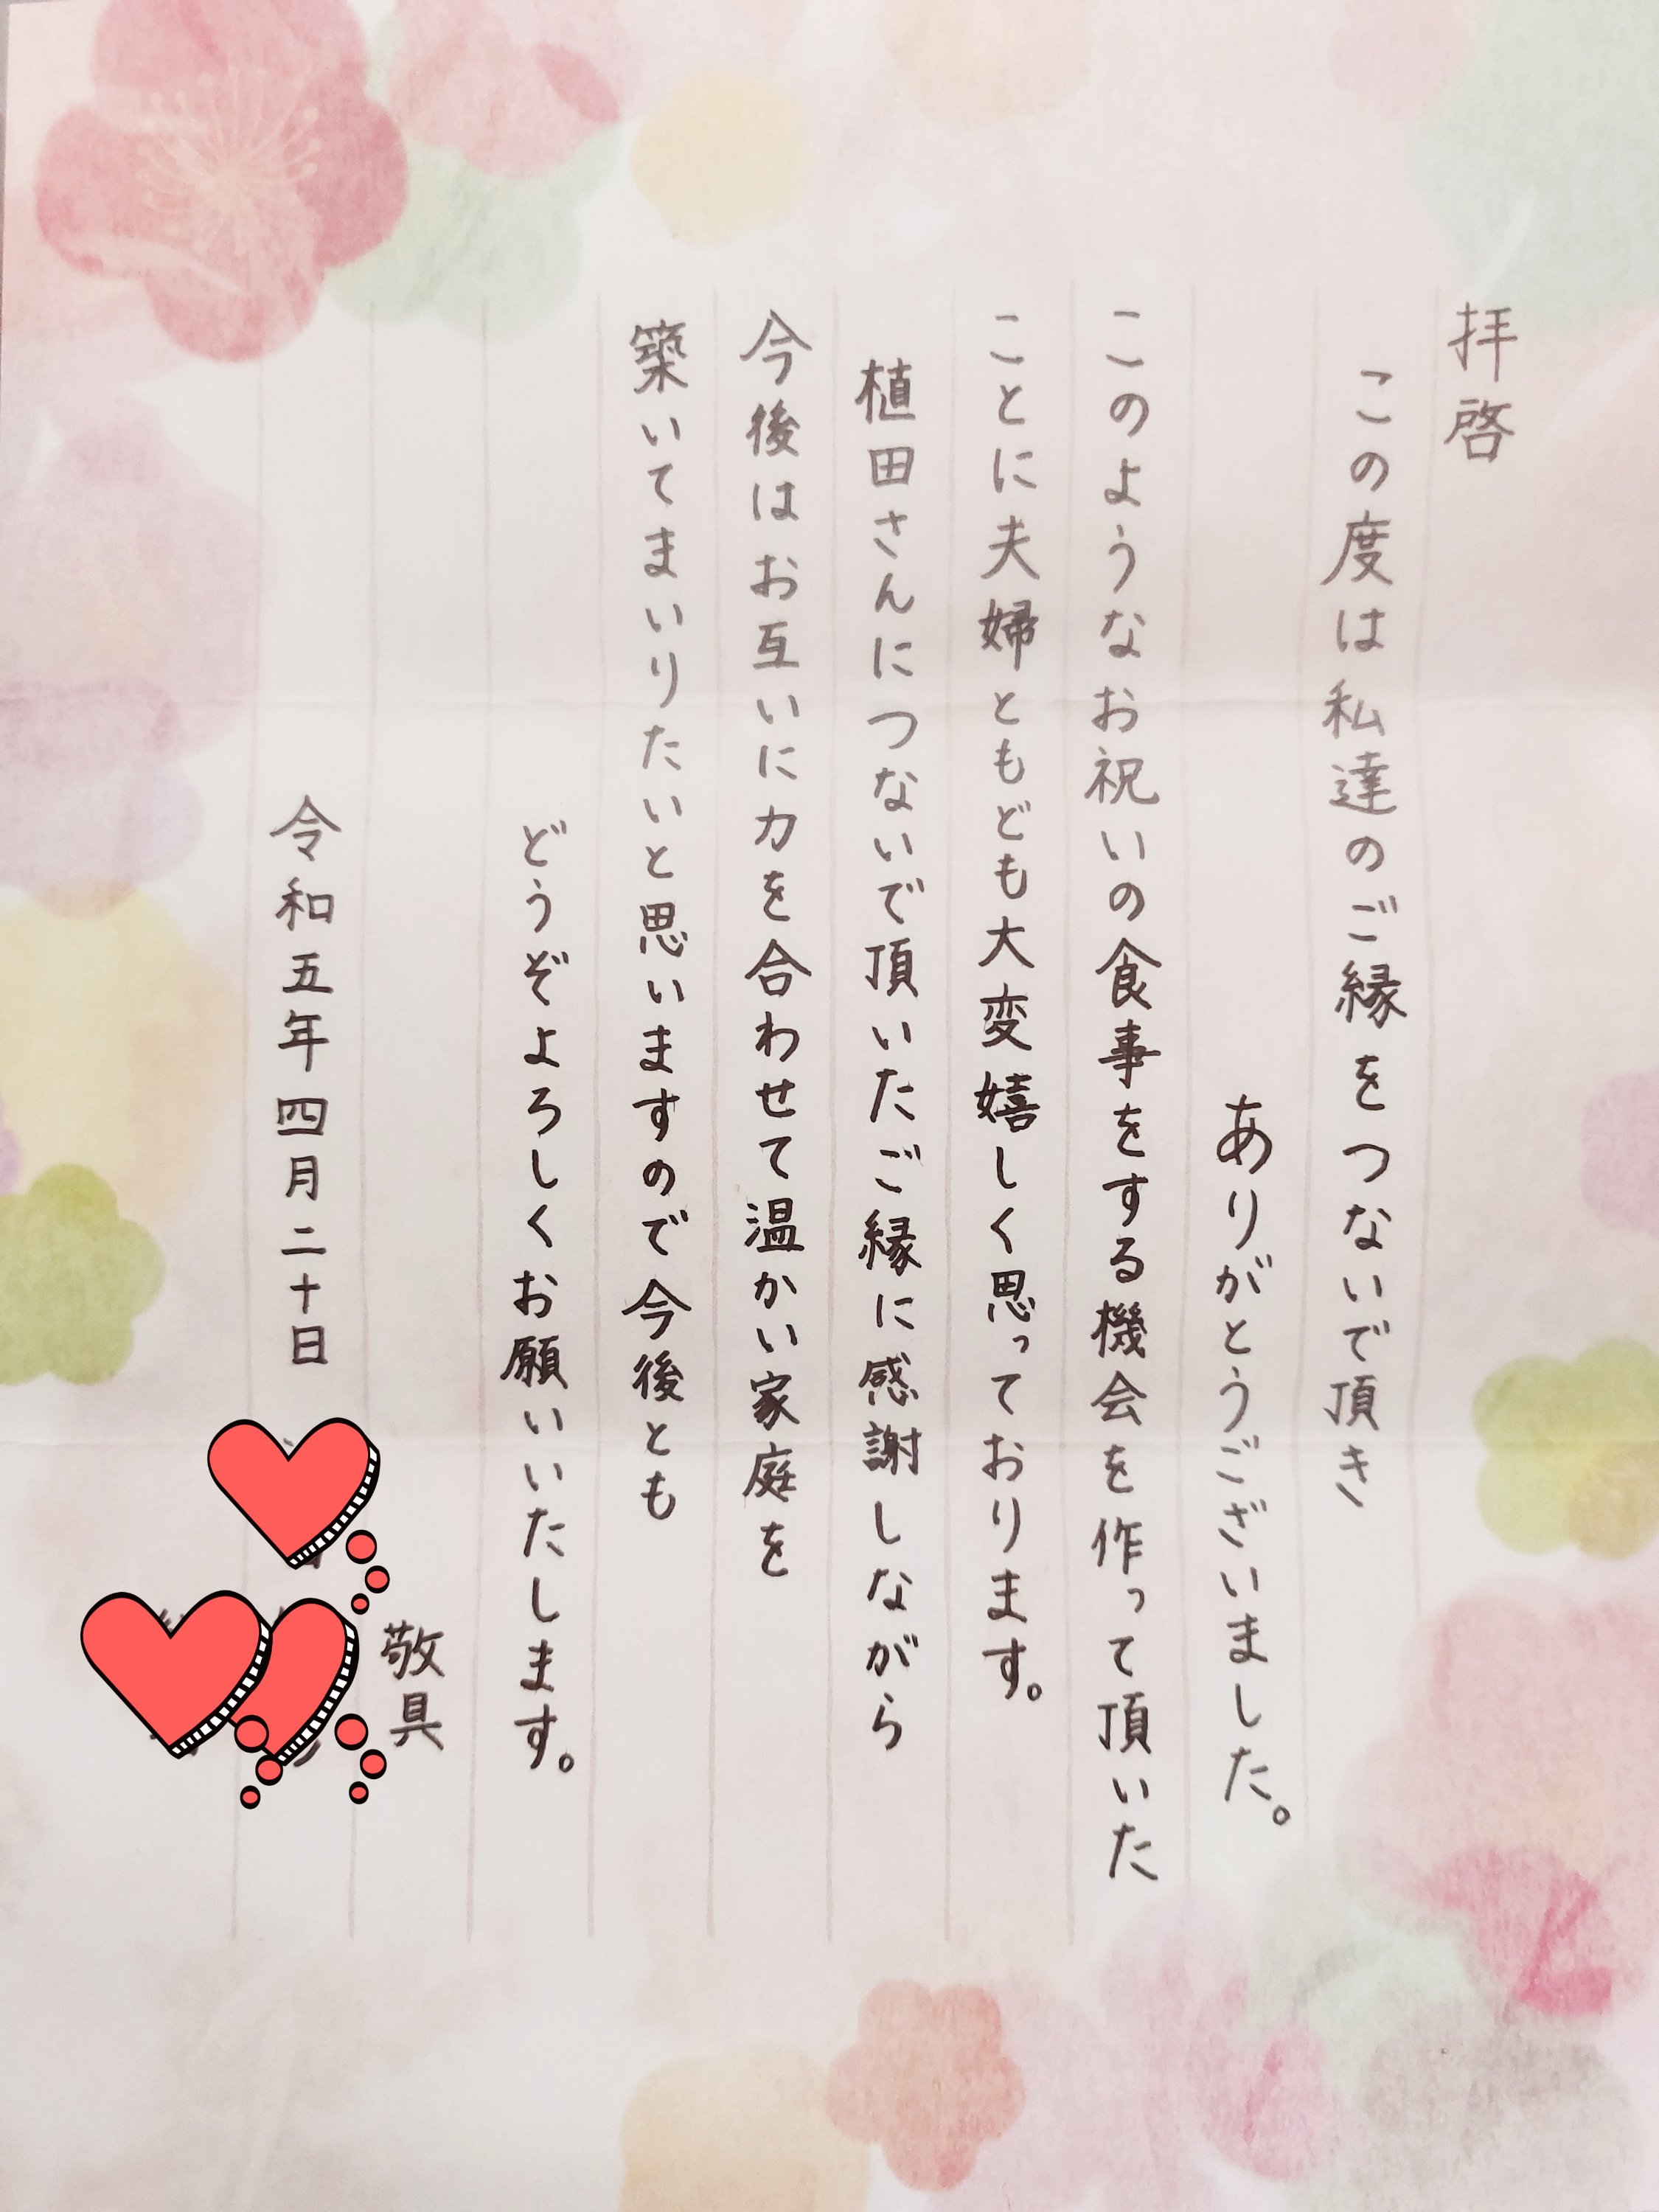 拝啓
この度は私達のご縁をつないで頂き
ありがとうございました。
このようなお祝いの食事をする機会を作って頂いた
ことに夫婦ともども大変嬉しく思っております。
植田さんにつないで頂いたご縁に感謝しながら
今後はお互いに力を合わせて温かい家庭を
築いてまいりたいと思いますので今後とも
どうぞよろしくお願いいたします。
敬具
令和五年四月二十日